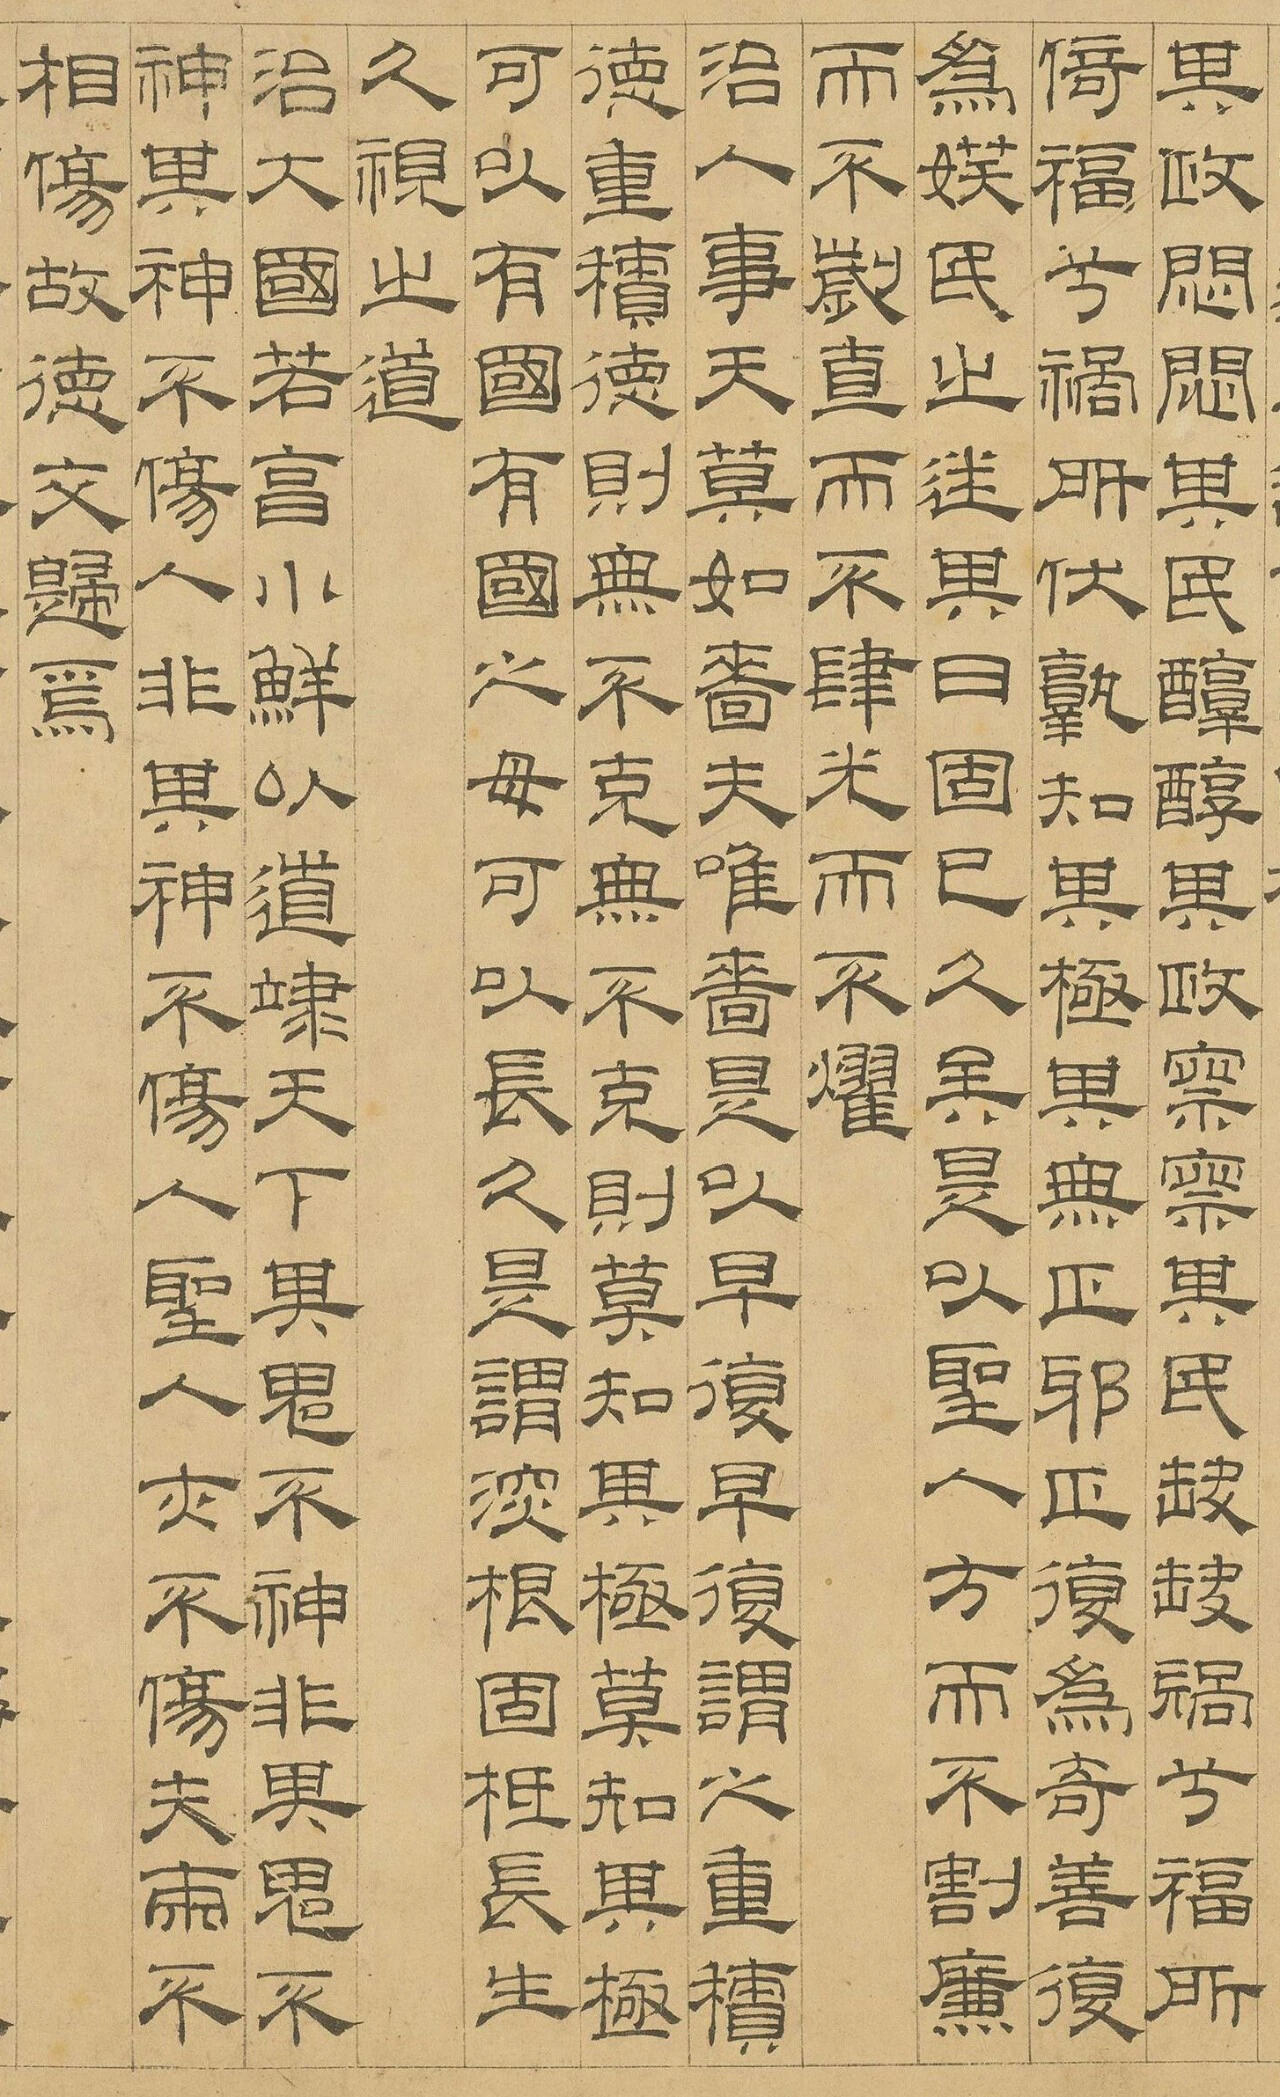 其政悶悶其民醇醇其政察察其民缺缺禍兮福所
倚福兮禍所伏孰知其極其無正邪正復為奇善復
為娱民之迷其日固已久矣是以聖人方而不割廉
而不劌直而不肆光而不耀
治人事天莫如嗇夫唯嗇是以早復早復謂之重積
德重積德則無不克無不克則莫知其極莫知其極
可以有國有國之母可以長久是謂深根固柢長生
久視之道
治大國若亯小鮮以道竦天下其鬼不神非其鬼不
神其神不傷人非其神不傷人聖人亦不傷夫兩不
相傷故德交歸焉